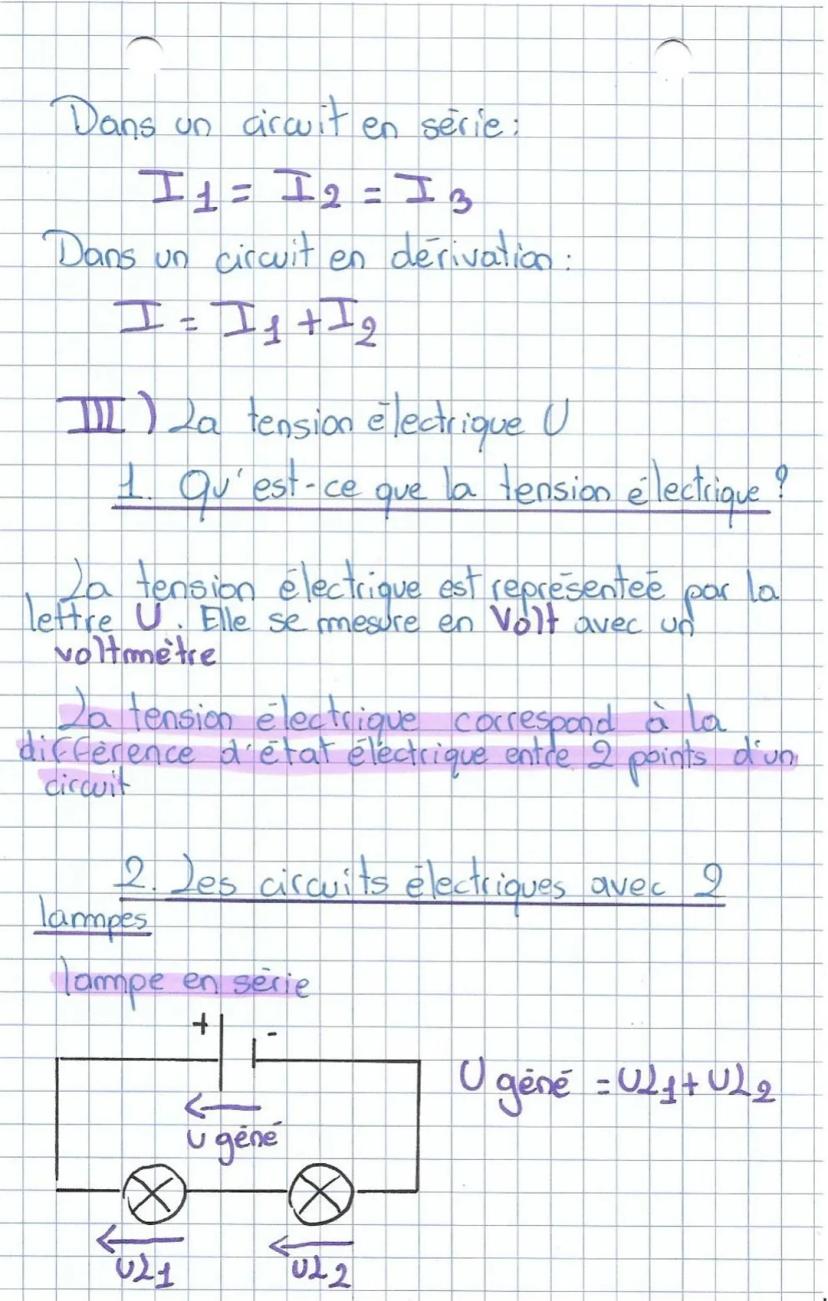 Dans un circuit en série :
I1 = I2 = I3
Dans un circuit en dérivation :
I = I1 + I2
III) La tension électrique U
1. Qu'est-ce que la tension électrique ?
La tension électrique est représentée par la
lettre U. Elle se mesure en Volt avec un
voltmètre
La tension électrique correspond à la
différence d'état électrique entre 2 points d'un
circuit
2. Les circuits électriques avec 2
lampes
lampe en série
+ -
U géné = UL1 + UL2
U géné
UL1 UL2